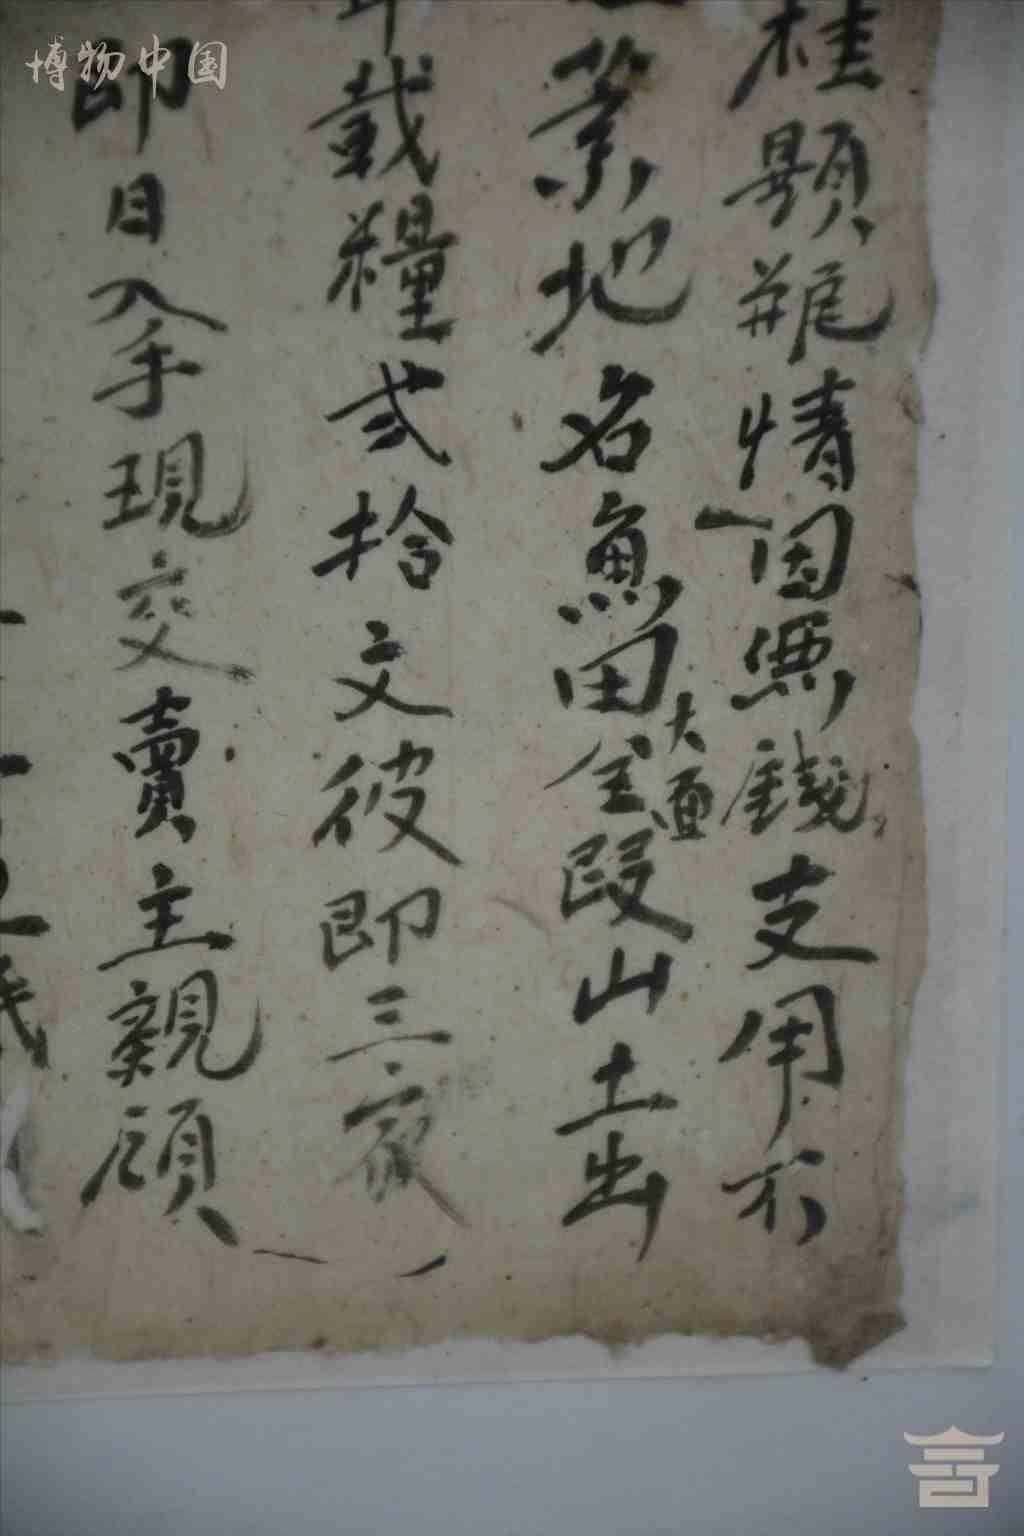 博物中国
桂顕瓶情因無錢支用不
業地名魚田大面全段山土出
載糧弍拾文彼即三家
即日入手現交賣主親領